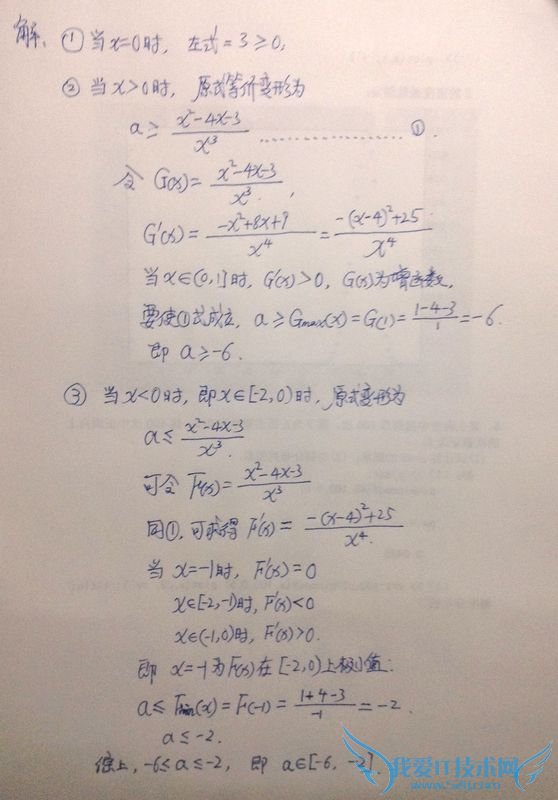 解: ① 当x=0时, 左式=3≥0;
② 当x>0时, 原式等价变形为
a≥ (x²-4x-3)/x³ ………………… ①.
令 G(x)= (x²-4x-3)/x³,
G'(x)= (-x²+8x+9)/x⁴ = (-(x-4)²+25)/x⁴
当x∈(0,1]时, G'(x)>0, G(x)为增函数,
要使①式成立, a≥Gmax(x)=G(1)= (1-4-3)/1 =-6.
即 a≥-6.
③ 当x<0时, 即x∈[-2,0)时, 原式变形为
a≤ (x²-4x-3)/x³.
可令 F(x)= (x²-4x-3)/x³
同①, 可求得 F'(x)= (-(x-4)²+25)/x⁴.
当 x=-1时, F'(x)=0
x∈[-2,-1)时, F'(x)<0
x∈(-1,0)时, F'(x)>0.
即 x=-1为F(x)在[-2,0)上极小值.
a≤Fmin(x)=F(-1)= (1+4-3)/-1 =-2.
a≤-2.
综上, -6≤a≤-2, 即 a∈[-6, -2].
我爱IT技术网